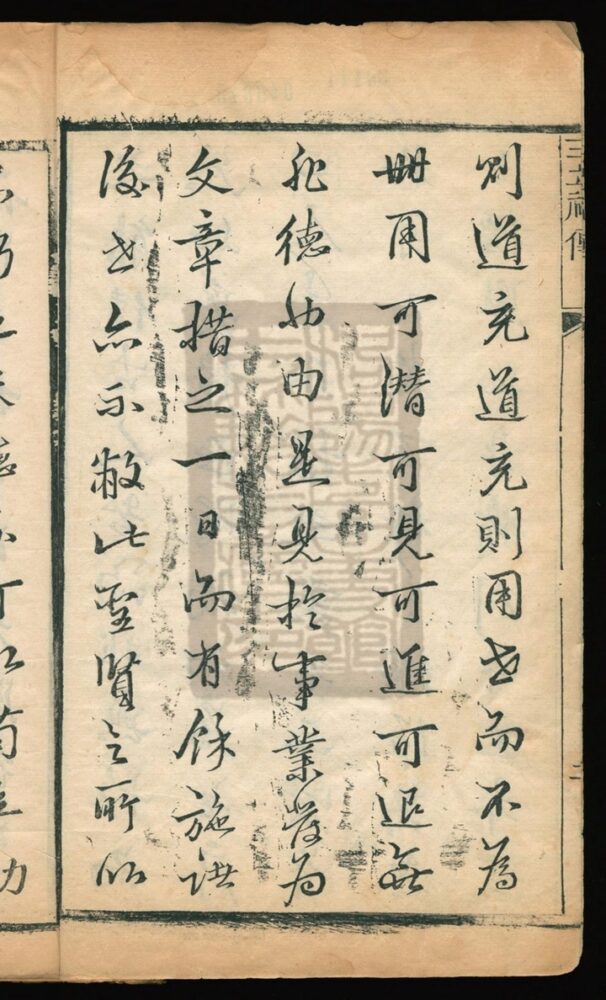 三立祠傳
則道充道充則用世而不為
世用可潛可見可進可退無
非德也由是見於事業發為
文章措之一日而有餘施諸
後世亦不敝此聖賢之所以